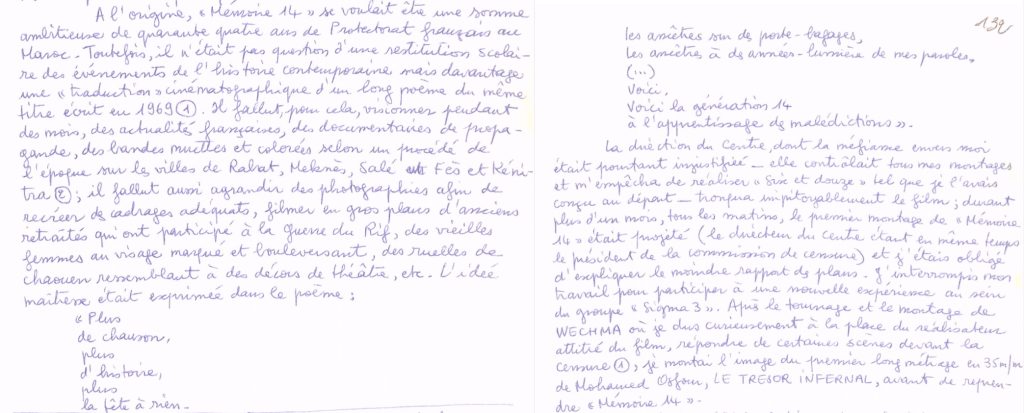 A l'origine, « Mémoire 14 » se voulait être une somme
ambitieuse de quarante quatre ans de Protectorat français au
Maroc. Toutefois, il n'était pas question d'une restitution scolai-
re des évènements de l'histoire contemporaine mais davantage
une « traduction » cinématographique d'un long poème du même
titre écrit en 1969 ①. Il fallut, pour cela, visionner pendant
des mois, des actualités françaises, des documentaires de propa-
gande, des bandes muettes et colorées selon un procédé de
l'époque sur les villes de Rabat, Meknès, Salé Fès et Kéni-
tra ②; il fallut aussi agrandir des photographies afin de
recréer des cadrages adéquats, filmer en gros plans d'anciens
retraités qui ont participé à la guerre du Rif, des vieilles
femmes au visage masque et bouleversant, des ruelles de
chaouen ressemblant à des décors de théâtre, etc. L'idée
maîtresse était exprimée dans le poème :
« Plus
de chanson,
plus
d'histoire,
plus
la fête à rien.
139
les ancêtres sur de porte-bagages,
les ancêtres à des années-lumière de mes paroles,
(...)
Voici,
Voici la génération 14
à l'apprentissage des malédictions ».
La direction du Centre, dont la méfiance envers moi
était pourtant injustifiée — elle contrôlait tous mes montages
et m'empêcha de réaliser « Six et douze » tel que je l'avais
conçu au départ — tronqua impitoyablement le film ; durant
plus d'un mois, tous les matins, le premier montage de « Mémoire
14 » était projeté (le directeur du Centre étant en même temps
le président de la commission de censure) et j'étais obligé
d'expliquer le moindre rapport de plans. J'interrompis mon
travail pour participer à une nouvelle expérience au sein
du groupe « Sigma 3 ». Après le tournage et le montage de
WECHMA où je dus curieusement à la place du réalisateur
attitré du film, répondre de certaines scènes devant la
censure ①, je montai l'image du premier long métrage en 35 m/m
de Mohamed Osfour, LE TRESOR INFERNAL, avant de repren-
dre « Mémoire 14 ».